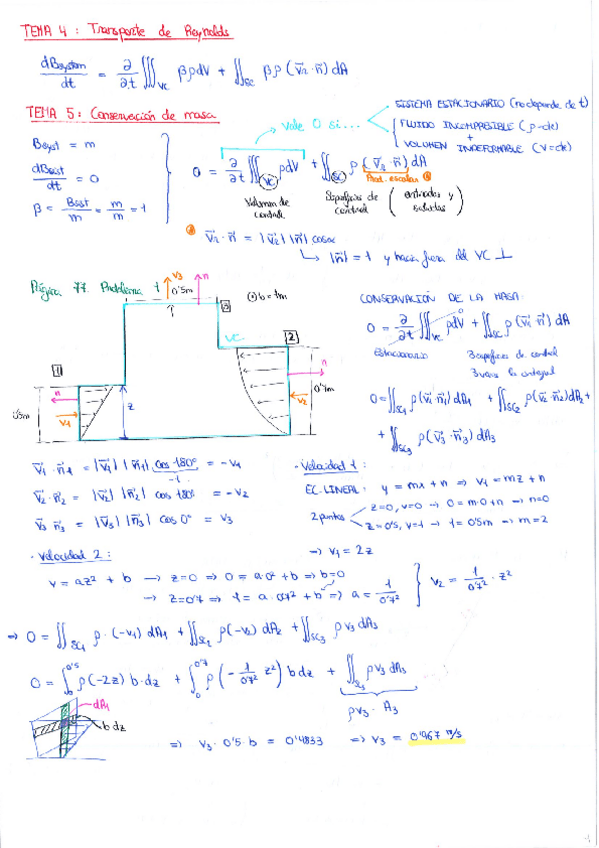 TEMA 4 : Transporte de Reynolds
dBsystem/dt = ∂/∂t ∭VC βρdV + ∬SC βρ (v⃗r · n⃗) dA
TEMA 5 : Conservación de masa
Vale 0 si...
SISTEMA ESTACIONARIO (no depende de t)
FLUIDO INCOMPRESIBLE (ρ=cte)
+
VOLUMEN INDEFORMABLE (V=cte)
Bsyst = m
dBsist/dt = 0
β = Bsist/m = m/m = 1
0 = ∂/∂t ∭VC ρdV + ∬SC ρ (v⃗r · n⃗) dA
Prod. escalar
Volumen de control
Superficies de control (entradas y salidas)
v⃗r · n⃗ = |v⃗r| |n⃗| cosα
↳ |n⃗| = 1 y hacia fuera del VC ⊥
Página 77. Problema 1
v3
n
0'5m
b = 1m
3
VC
2
1
n
n
v1
v2
z
0'5m
0'7m
CONSERVACIÓN DE LA MASA:
0 = ∂/∂t ∭VC ρdV + ∬SC ρ (v⃗i · n⃗) dA
0
Estacionario
3 superficies de control
0 = ∬SC1 ρ(v⃗1 · n⃗1) dA1 + ∬SC2 ρ(v⃗2 · n⃗2) dA2 +
+ ∬SC3 ρ (v⃗3 · n⃗3) dA3
v⃗1 · n⃗1 = |v⃗1| |n⃗1| cos 180° = -v1
-1
v⃗2 · n⃗2 = |v⃗2| |n⃗2| cos 180° = -v2
v⃗3 n⃗3 = |v⃗3| |n⃗3| cos 0° = v3
· Velocidad 1 :
EC. LINEAL : y = mx + n ⇒ v1 = mz + n
2 puntos
z=0, v=0 → 0 = m·0 + n → n=0
z=0'5, v=1 → 1 = 0'5m → m=2
→ v1 = 2z
· Velocidad 2 :
v = az² + b → z=0 ⇒ 0 = a·0² + b ⇒ b=0
→ z=0'7 ⇒ 1 = a · 0'7² + b ⇒ a = 1/0'7²
v2 = 1/0'7² · z²
⇒ 0 = ∬SC1 ρ · (-v1) dA1 + ∬SC2 ρ(-v2) dA2 + ∬SC3 ρ v3 dA3
0 = ∫0^0'5 ρ(-2z) b·dz + ∫0^0'7 ρ (-1/0'7² z²) b dz + ∬SC3 ρ v3 dA3
ρv3 · A3
dA1
b dz
⇒ v3 · 0'5 · b = 0'4833 ⇒ v3 = 0'967 m/s